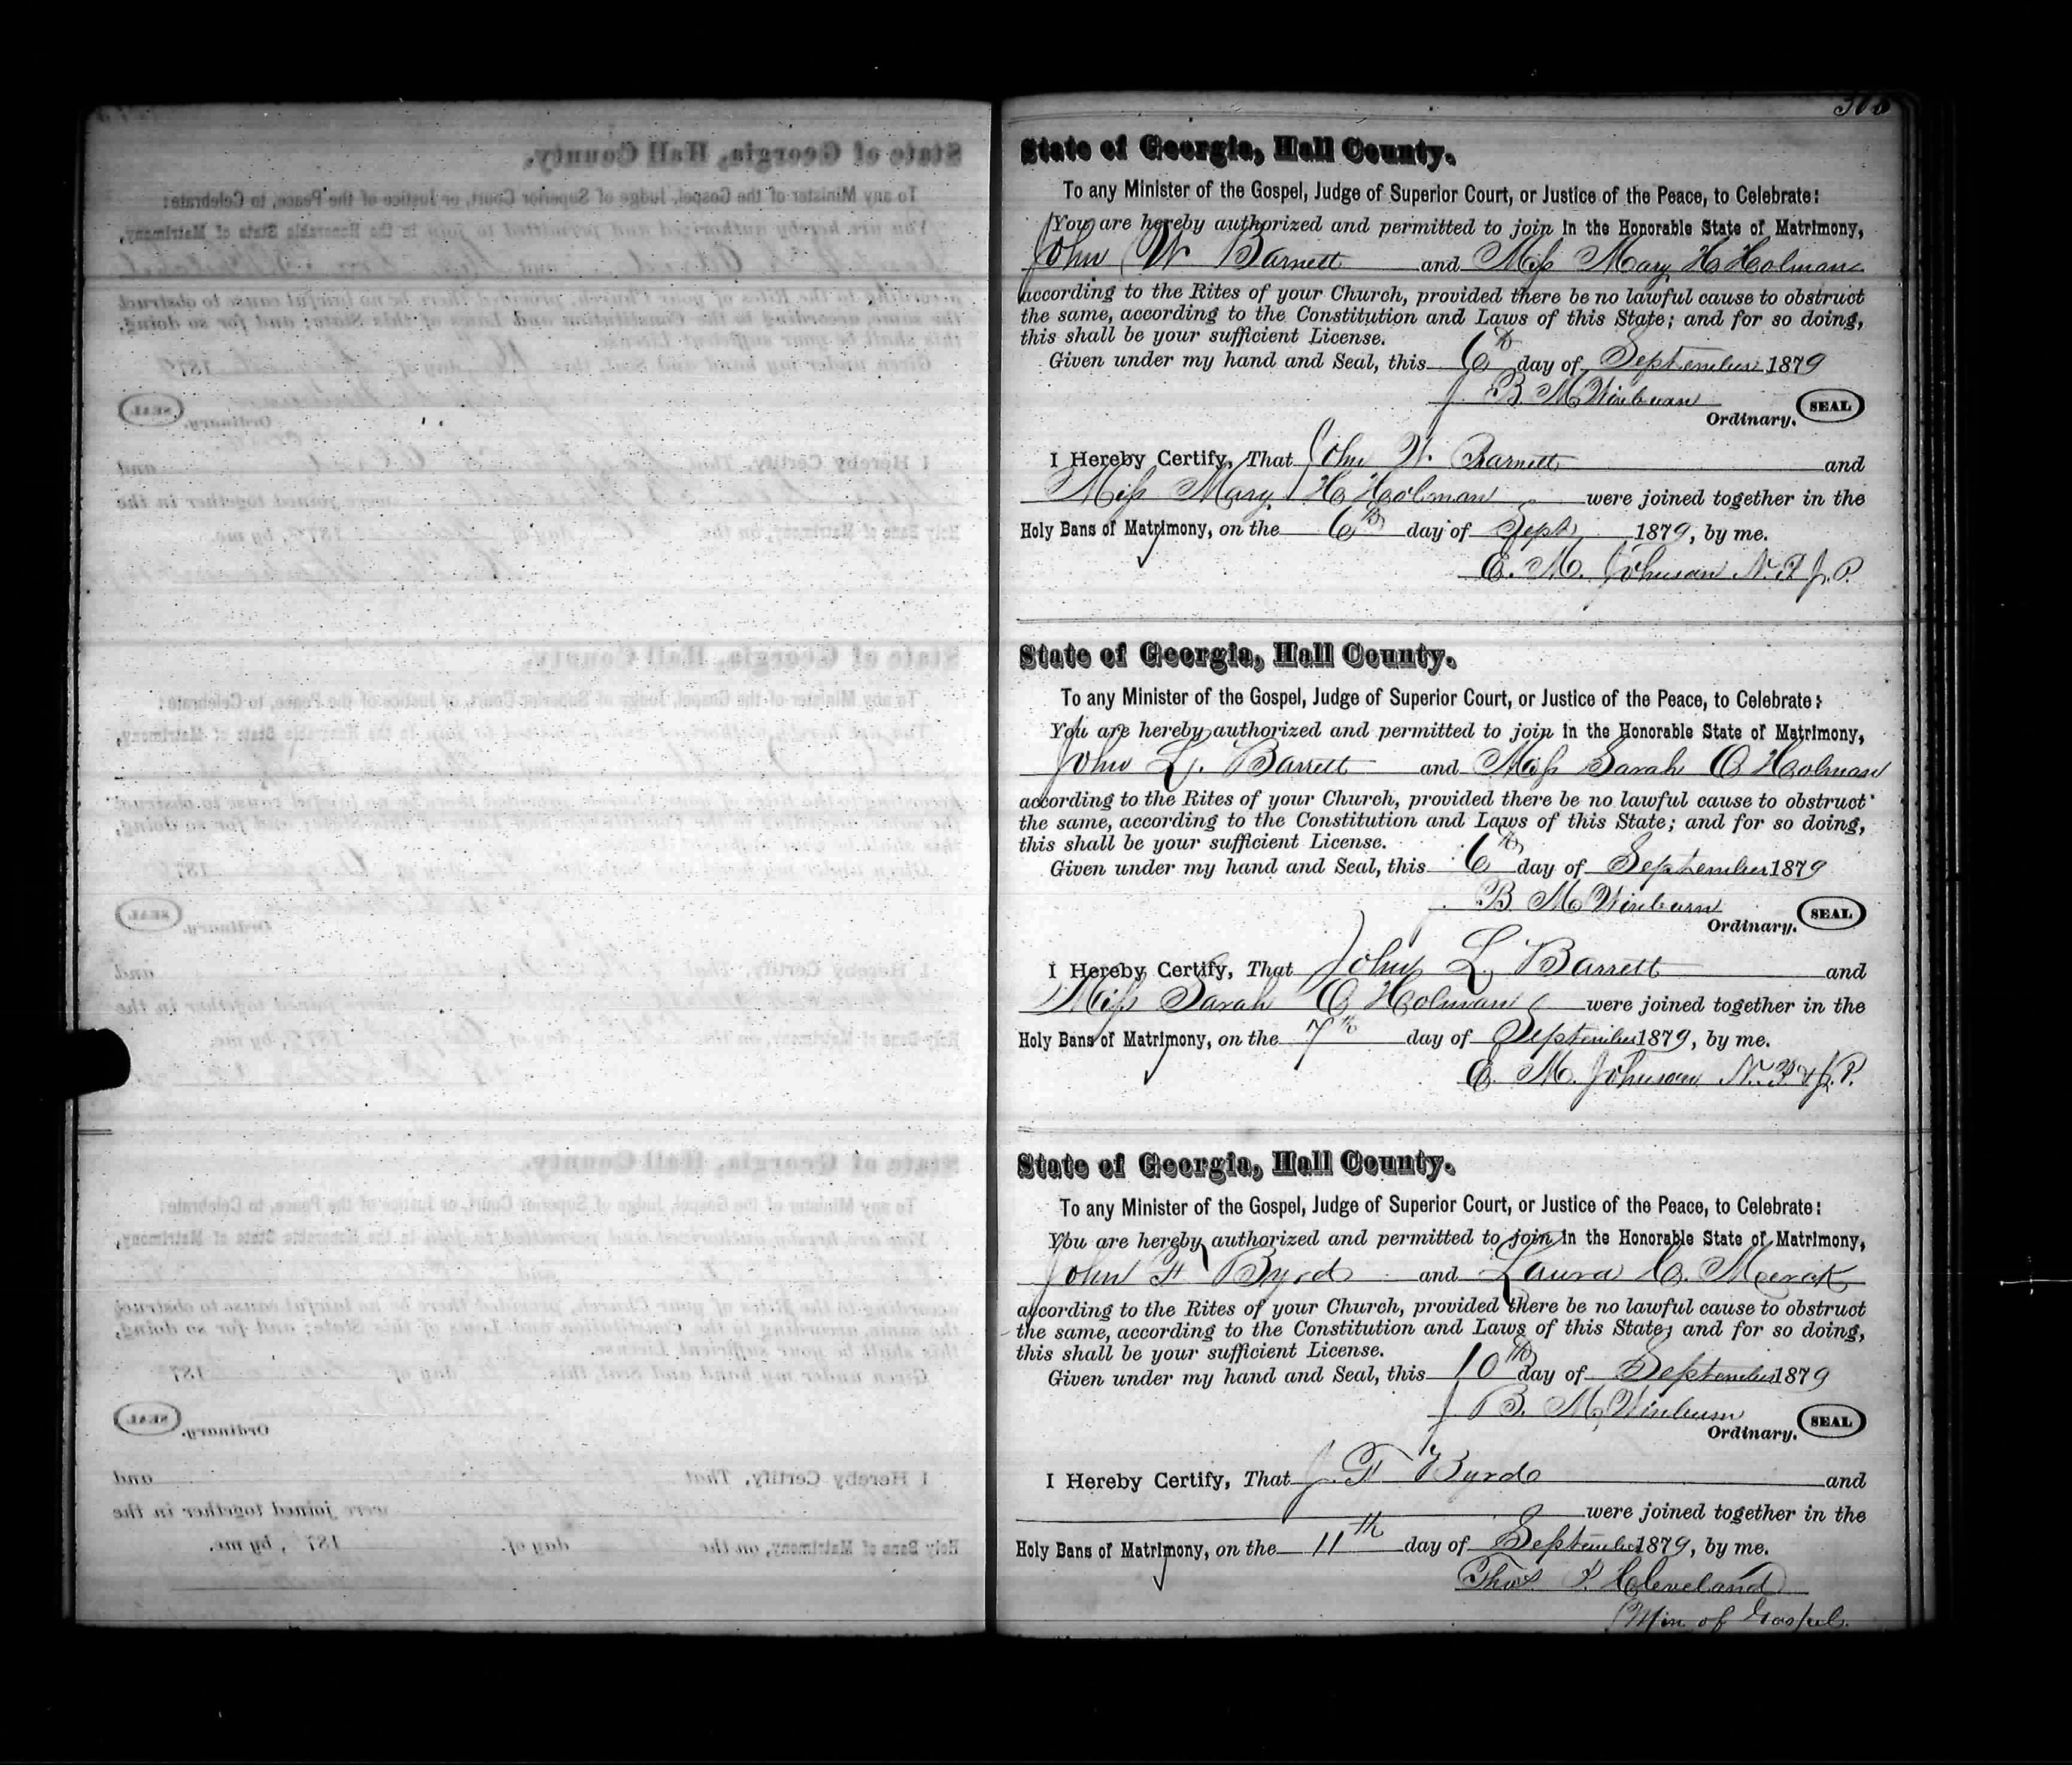 State of Georgia, Hall County.
To any Minister of the Gospel, Judge of Superior Court, or Justice of the Peace, to Celebrate:
You are hereby authorized and permitted to join in the Honorable State of Matrimony,
John W Barnett and Miss Mary H Holman
according to the Rites of your Church, provided there be no lawful cause to obstruct
the same, according to the Constitution and Laws of this State; and for so doing,
this shall be your sufficient License.
Given under my hand and Seal, this 6th day of September 1879
J. B. M Winburn
Ordinary. SEAL
I Hereby Certify, That John W. Barnett and
Miss Mary H Holman were joined together in the
Holy Bans of Matrimony, on the 6th day of Sept 1879, by me.
E. M. Johnson N.P J.P.
State of Georgia, Hall County.
To any Minister of the Gospel, Judge of Superior Court, or Justice of the Peace, to Celebrate:
You are hereby authorized and permitted to join in the Honorable State of Matrimony,
John L. Barrett and Miss Sarah O Holman
according to the Rites of your Church, provided there be no lawful cause to obstruct
the same, according to the Constitution and Laws of this State; and for so doing,
this shall be your sufficient License.
Given under my hand and Seal, this 6th day of September 1879
B. M Winburn
Ordinary. SEAL
I Hereby Certify, That John L. Barrett and
Miss Sarah O Holman were joined together in the
Holy Bans of Matrimony, on the 7th day of September 1879, by me.
E. M. Johnson N.P & J.P.
State of Georgia, Hall County.
To any Minister of the Gospel, Judge of Superior Court, or Justice of the Peace, to Celebrate:
You are hereby authorized and permitted to join in the Honorable State of Matrimony,
John F Byrd and Laura C. Merck
according to the Rites of your Church, provided there be no lawful cause to obstruct
the same, according to the Constitution and Laws of this State; and for so doing,
this shall be your sufficient License.
Given under my hand and Seal, this 10th day of September 1879
J B. M. Winburn
Ordinary. SEAL
I Hereby Certify, That J. F Byrd and
were joined together in the
Holy Bans of Matrimony, on the 11th day of September 1879, by me.
Thos. P. Cleveland
Min of Gospel.